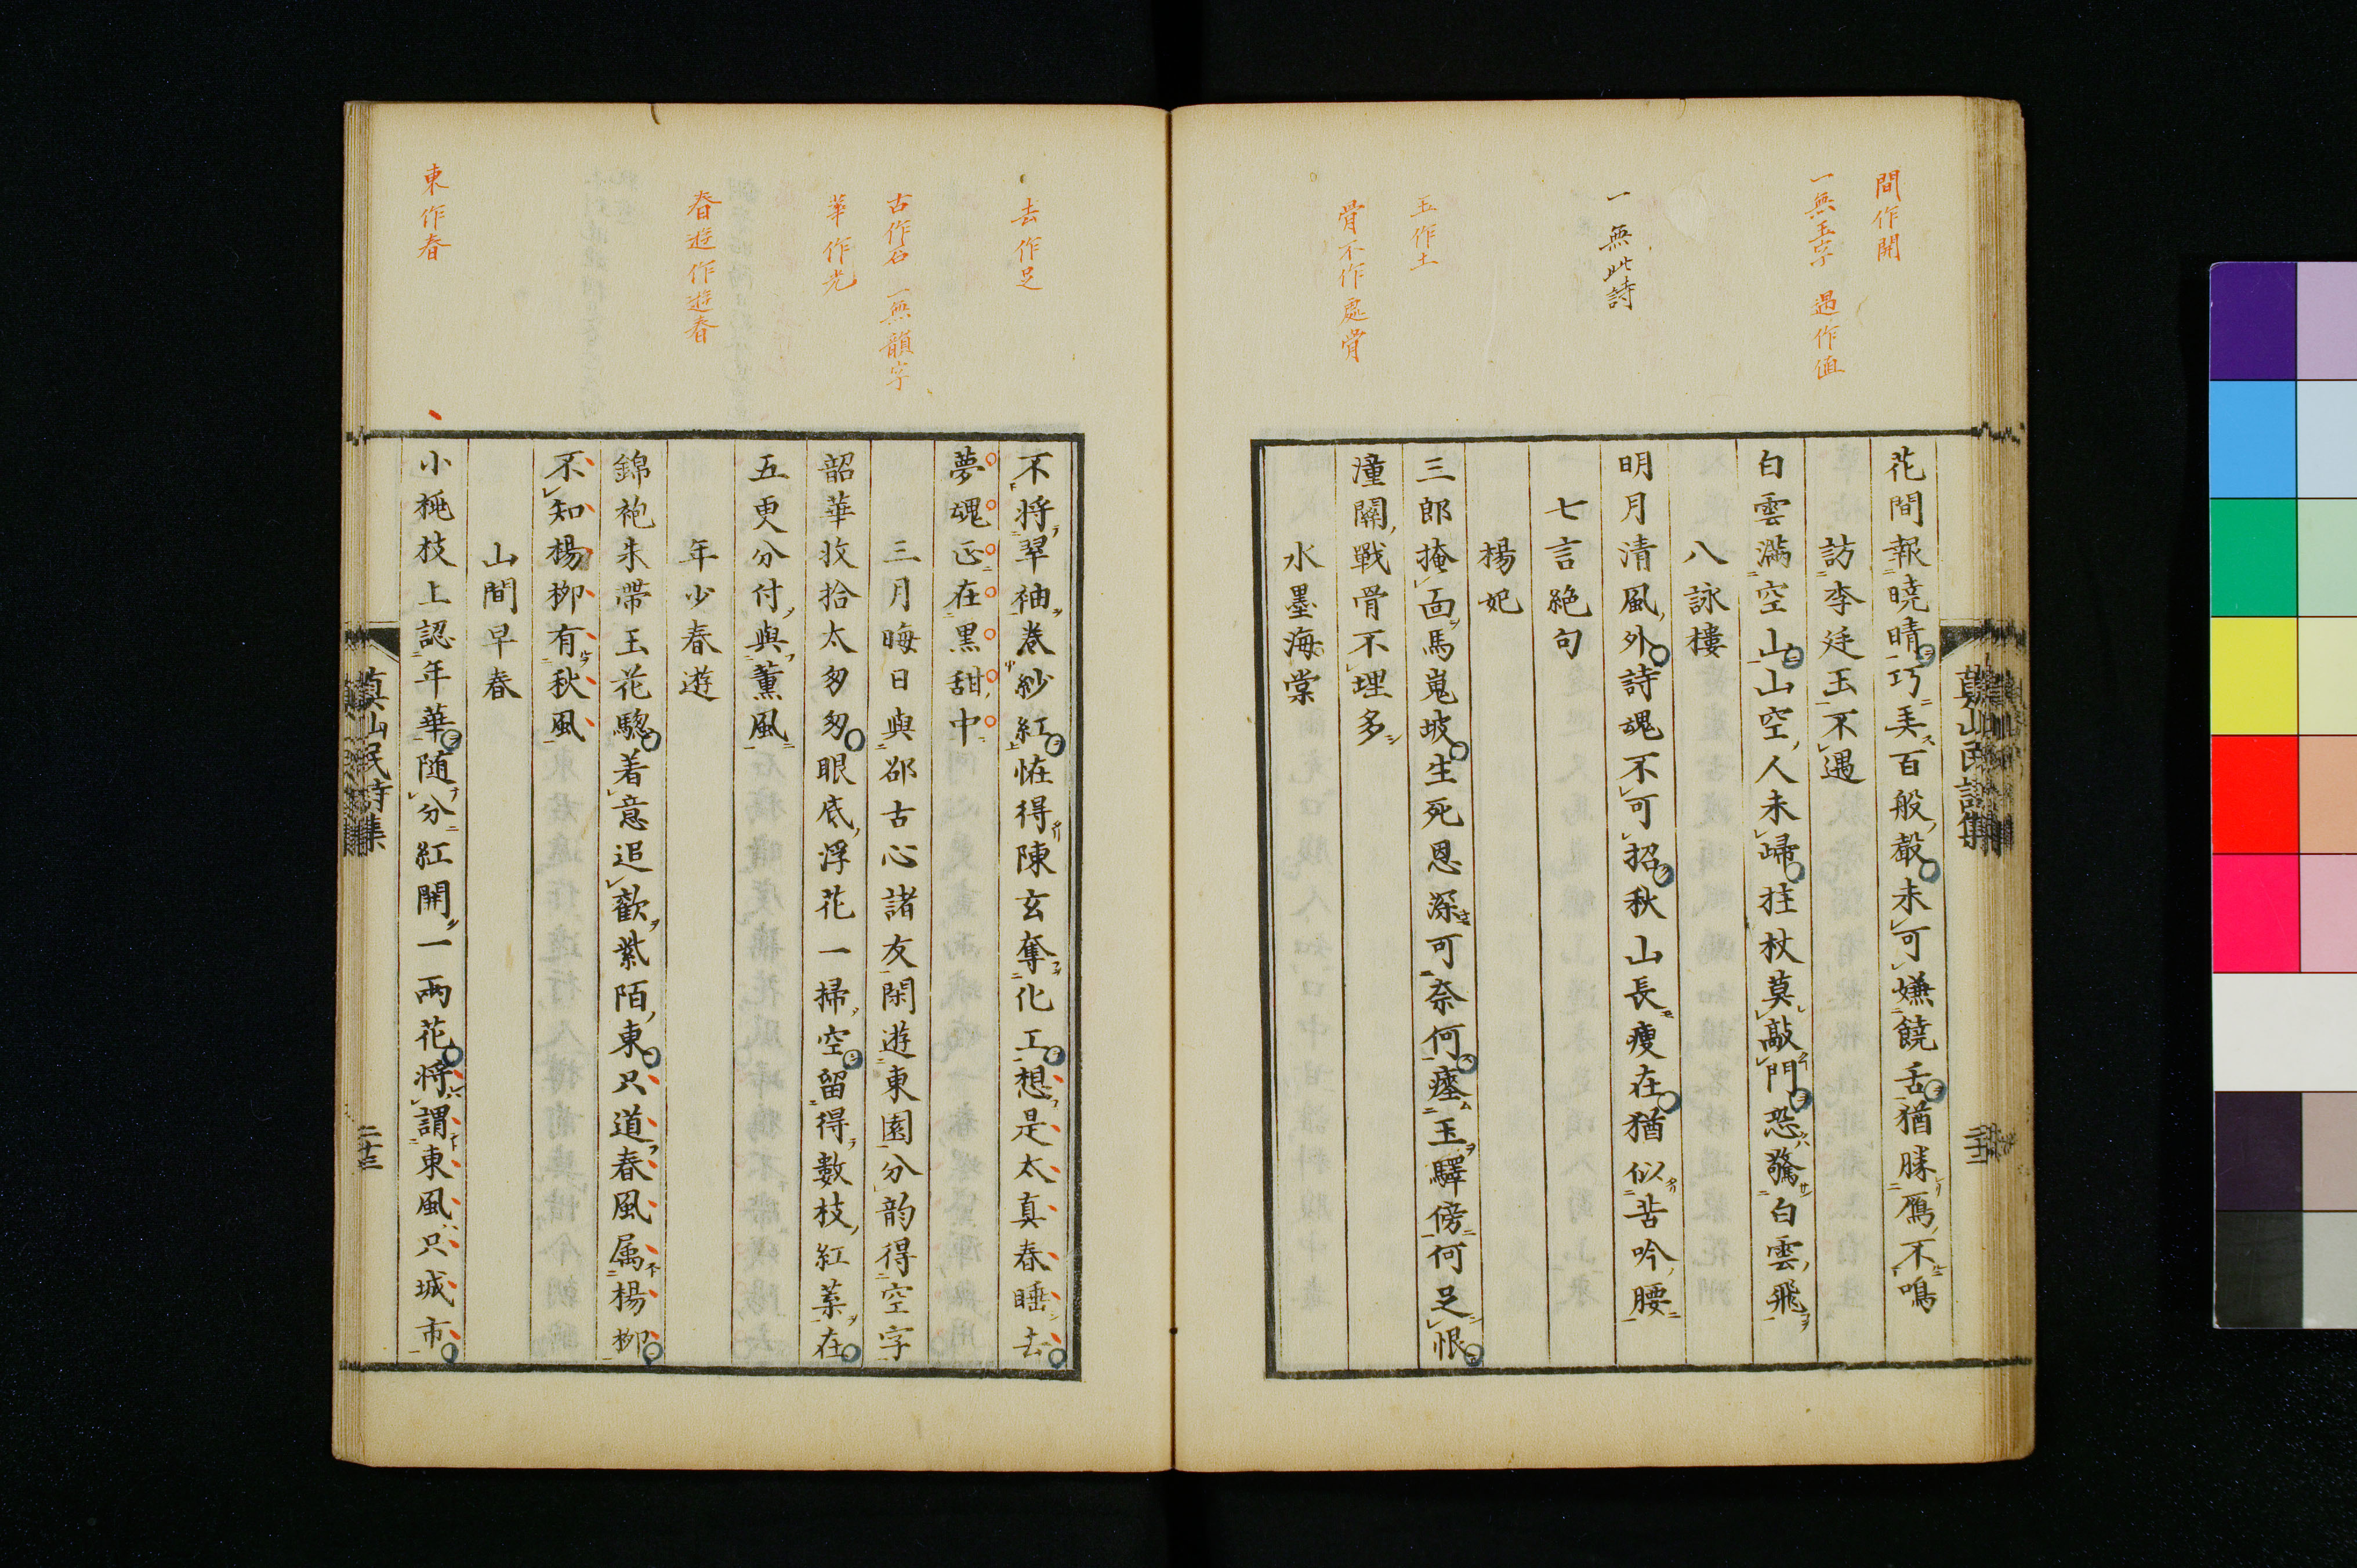 間作開
一無玉字　遇作値
一無此詩
玉作土
骨不作處骨
花間報曉晴巧美百般聲未可嫌饒舌猶勝鴈不鳴
訪李廷玉不遇
白雲滿空山山空人未歸拄杖莫敲門恐驚白雲飛
八詠樓
明月清風外詩魂不可招秋山長瘦在猶似苦吟腰
七言絶句
楊妃
三郎掩面馬嵬坡生死恩深可奈何瘞玉驛傍何足恨
潼關戰骨不埋多
水墨海棠
真山民詩集
去作足
古作石　一無韻字
華作光
春遊作遊春
東作春
不將翠袖卷紗紅恠得陳玄奪化工想是太真春睡去
夢魂正在黒甜中
三月晦日與邵古心諸友閑遊東園分韵得空字
韶華收拾太匆匆眼底浮花一掃空留得數枝紅薬在
五更分付與薫風
年少春遊
錦袍朱帶玉花驄着意追歡紫陌東只道春風属楊柳
不知楊柳有秋風
山間早春
小桃枝上認年華随分紅開一兩花將謂東風只城市
真山民詩集
二十三